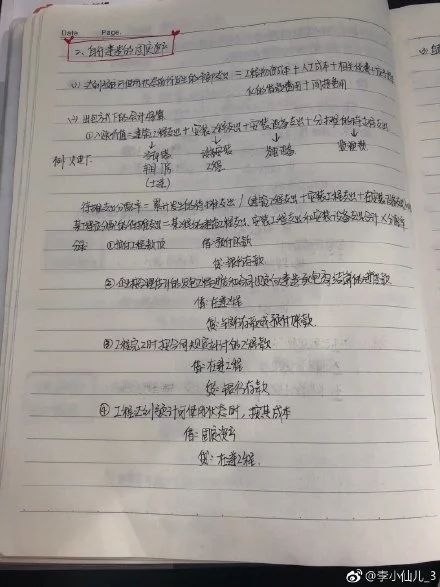 Date Page.
二、自行建造的固定资产
(1) 达到预定可使用状态前所发生的必要支出 = 工程物资成本 + 人工成本 + 相关税费 + 应予资本
化的借款费用 + 间接费用
(2) 出包方式下的会计核算
① 入账价值 = 建筑工程支出 + 安装工程支出 + 安装设备支出 + 分摊的待摊支出
例) 火电厂:
冷却塔 设备安装 发电设备 管理费
工程
(土建)
待摊支出分配率 = 累计发生的待摊支出 / (建筑工程支出 + 安装工程支出 + 在安装设备支出)
某工程应分配的待摊支出 = 某工程的建筑工程支出、安装工程支出和在安装设备支出合计 × 分配率
① 预付工程款项 借: 预付账款
贷: 银行存款
② 企业按合理估计的发包工程进度和合同规定向建造承包商结算的进度款
借: 在建工程
贷: 银行存款或预付账款
③ 工程完工时按合同规定补付的工程款
借: 在建工程
贷: 银行存款
④ 工程达到预定可使用状态时, 按其成本
借: 固定资产
贷: 在建工程.
@李小仙儿_3